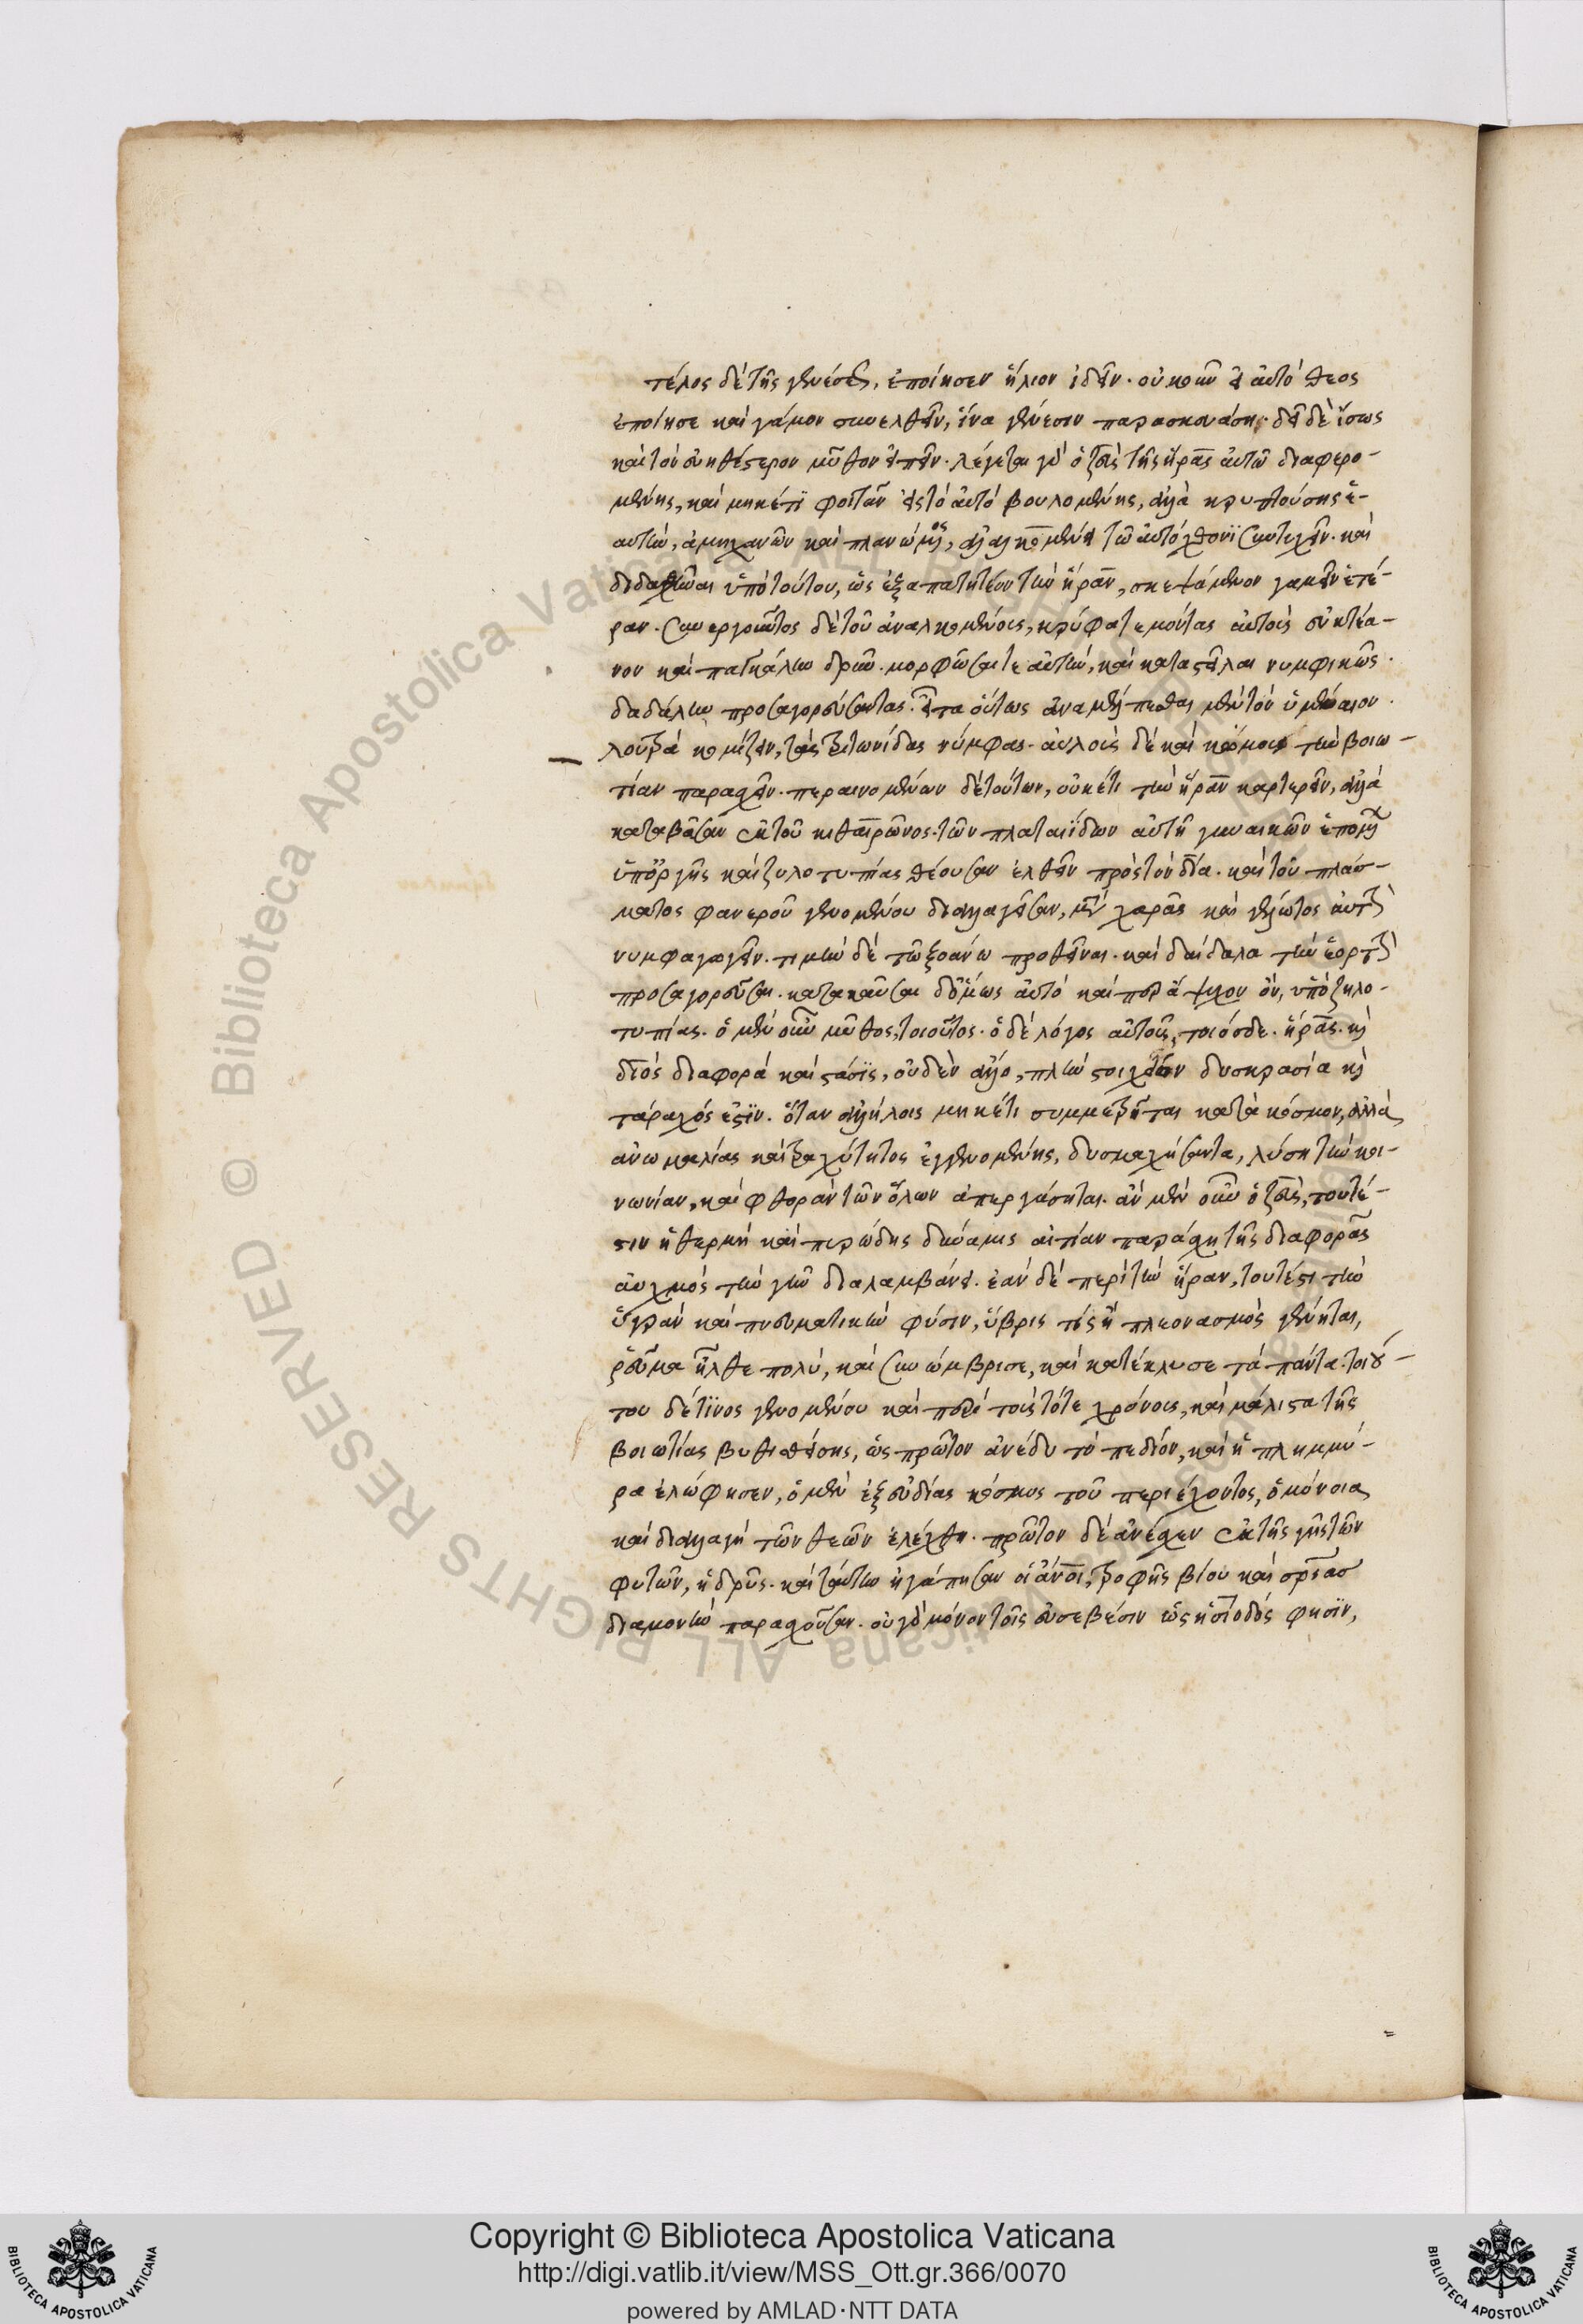 τέλος δὲ τῆς γενέσεως, ἐποίησεν ἥλιον ἰδεῖν. οὐκοῦν εἰ αὐτὸ θεος
ἐποίησε καὶ γάμον συνελθεῖν, ἵνα γένεσιν παρασκευάση. δεῖ δὲ ἴσως
καὶ τὸν εὐηθέστερον μῦθον εἰπεῖν. λέγεται γὰρ ὁ ζεὺς τῆς ἥρας αὐτῶ διαφερο-
μένης, καὶ μηκέτι φοιτᾶν εἰς τὸ αὐτὸ βουλομένης, ἀλλὰ κρυπτούσης ἑ-
αυτὴν, ἀμηχανῶν καὶ πλανώμενος, τῶ αὐτόχθονι συντυχεῖν. καὶ
διδαχθῆναι ὑπὸ τούτου, ὡς ἐξαπατητέον τὴν ἥραν, σκεψάμενον γαμεῖν ἑτέ-
ραν. συνεργοῦντος δὲ τοῦ ἀναλκομένοις, κρύφα τεμόντας αὐτοὺς εὐκτέα-
νον καὶ παγκάλην δρῦν. μορφῶσαί τε αὐτὴν, καὶ καταστεῖλαι νυμφικῶς.
δαδάλην προσαγορεύσαντας. εἶτα οὕτως ἀναμέλπεσθαι μὲν τὸν ὑμέναιον.
λουτρὰ κομίζειν, τὰς τριτωνίδας νύμφας. αὐλοὺς δὲ καὶ κώμους τὴν βοιω-
τίαν παρασχεῖν. περαινομένων δὲ τούτων, οὐκέτι τὴν ἥραν καρτερεῖν, ἀλλὰ
καταβᾶσαν ἐκ τοῦ κιθαιρῶνος. τῶν πλαταιΐδων αὐτῆ γυναικῶν ἑπομένων
ὑπὸ ὀργῆς καὶ ζηλοτυπίας θέουσαν ἐλθεῖν πρὸς τὸν δία. καὶ τοῦ πλάσ-
ματος φανεροῦ γενομένου διαλλαγεῖσαν, μετὰ χαρᾶς καὶ γέλωτος αὐτὴν
νυμφαγωγεῖν. τιμὴν δὲ τῶ ξοάνω προσθεῖναι. καὶ δαίδαλα τὴν ἑορτὴν
προσαγορεῦσαι. κατακαῦσαι δ' ὅμως αὐτὸ καίπερ ἄψυχον ὂν, ὑπὸ ζηλο-
τυπίας. ὁ μὲν οὖν μῦθος, τοιοῦτος. ὁ δὲ λόγος αὐτοῦ, τοιόσδε. ἥρας. καὶ
διὸς διαφορὰ καὶ στάσις, οὐδὲν ἄλλο, πλὴν στοιχείων δυσκρασία καὶ
τάραχός ἐστιν. ὅταν ἀλλήλοις μηκέτι συμμετρῆται κατὰ κόσμον, ἀλλὰ
ἀνωμαλίας καὶ τραχύτητος ἐγγενομένης, δυσμαχήσαντα, λύση τὴν κοι-
νωνίαν, καὶ φθορὰν τῶν ὅλων ἀπεργάσηται. ἂν μὲν οὖν ὁ ζεὺς, τουτέ-
στιν ἡ θερμὴ καὶ πυρώδης δύναμις αἰτίαν παράσχη τῆς διαφορᾶς
αὐχμὸς τὴν γῆν διαλαμβάνει. ἐὰν δὲ περὶ τὴν ἥραν, τουτέστι τὴν
ὑγρὰν καὶ πνευματικὴν φύσιν, ὕβρις τὶς ἢ πλεονασμὸς γένηται,
ῥεῦμα ἦλθε πολὺ, καὶ συνώμβρισε, καὶ κατέκλυσε τὰ πάντα. τοιού-
του δέ τινος γενομένου καὶ περὶ τοὺς τότε χρόνους, καὶ μάλιστα τῆς
βοιωτίας βυθισθείσης, ὡς πρῶτον ἀνέδυ τὸ πεδίον, καὶ ἡ πλημμύ-
ρα ἐλώφησεν, ὁ μὲν ἐξ εὐδίας κόσμος τοῦ περιέχοντος, ὁμόνοια
καὶ διαλλαγὴ τῶν θεῶν ἐλέχθη. πρῶτον δὲ ἀνέσχεν ἐκ τῆς γῆς τῶν
φυτῶν, ἡ δρῦς. καὶ ταύτην ἠγάπησαν οἱ ἄνοι, τροφῆς βίου καὶ
διαμονὴν παρασχοῦσαν. οὐ γὰρ μόνον τοῖς εὐσεβέσιν ὡς ἡσίοδός φησϊν,